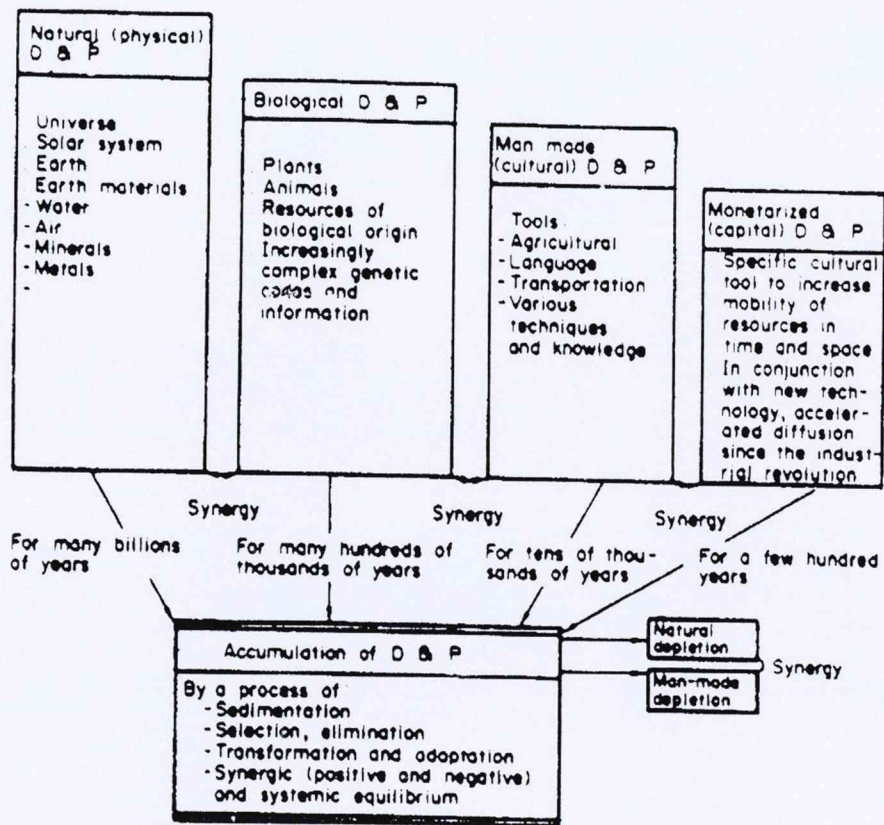 Natural (physical)
D & P
Universe
Solar system
Earth
Earth materials
- Water
- Air
- Minerals
- Metals
-
Biological D & P
Plants
Animals
Resources of
biological origin
Increasingly
complex genetic
codes and
information
Man made
(cultural) D & P
Tools
- Agricultural
- Language
- Transportation
- Various
techniques
and knowledge
Monetarized
(capital) D & P
Specific cultural
tool to increase
mobility of
resources in
time and space
In conjunction
with new tech-
nology, acceler-
ated diffusion
since the indust-
rial revolution
Synergy
Synergy
Synergy
For many billions
of years
For many hundreds of
thousands of years
For tens of thou-
sands of years
For a few hundred
years
Accumulation of D & P
By a process of:
- Sedimentation
- Selection, elimination
- Transformation and adaptation
- Synergic (positive and negative)
and systemic equilibrium
Natural
depletion
Synergy
Man-made
depletion